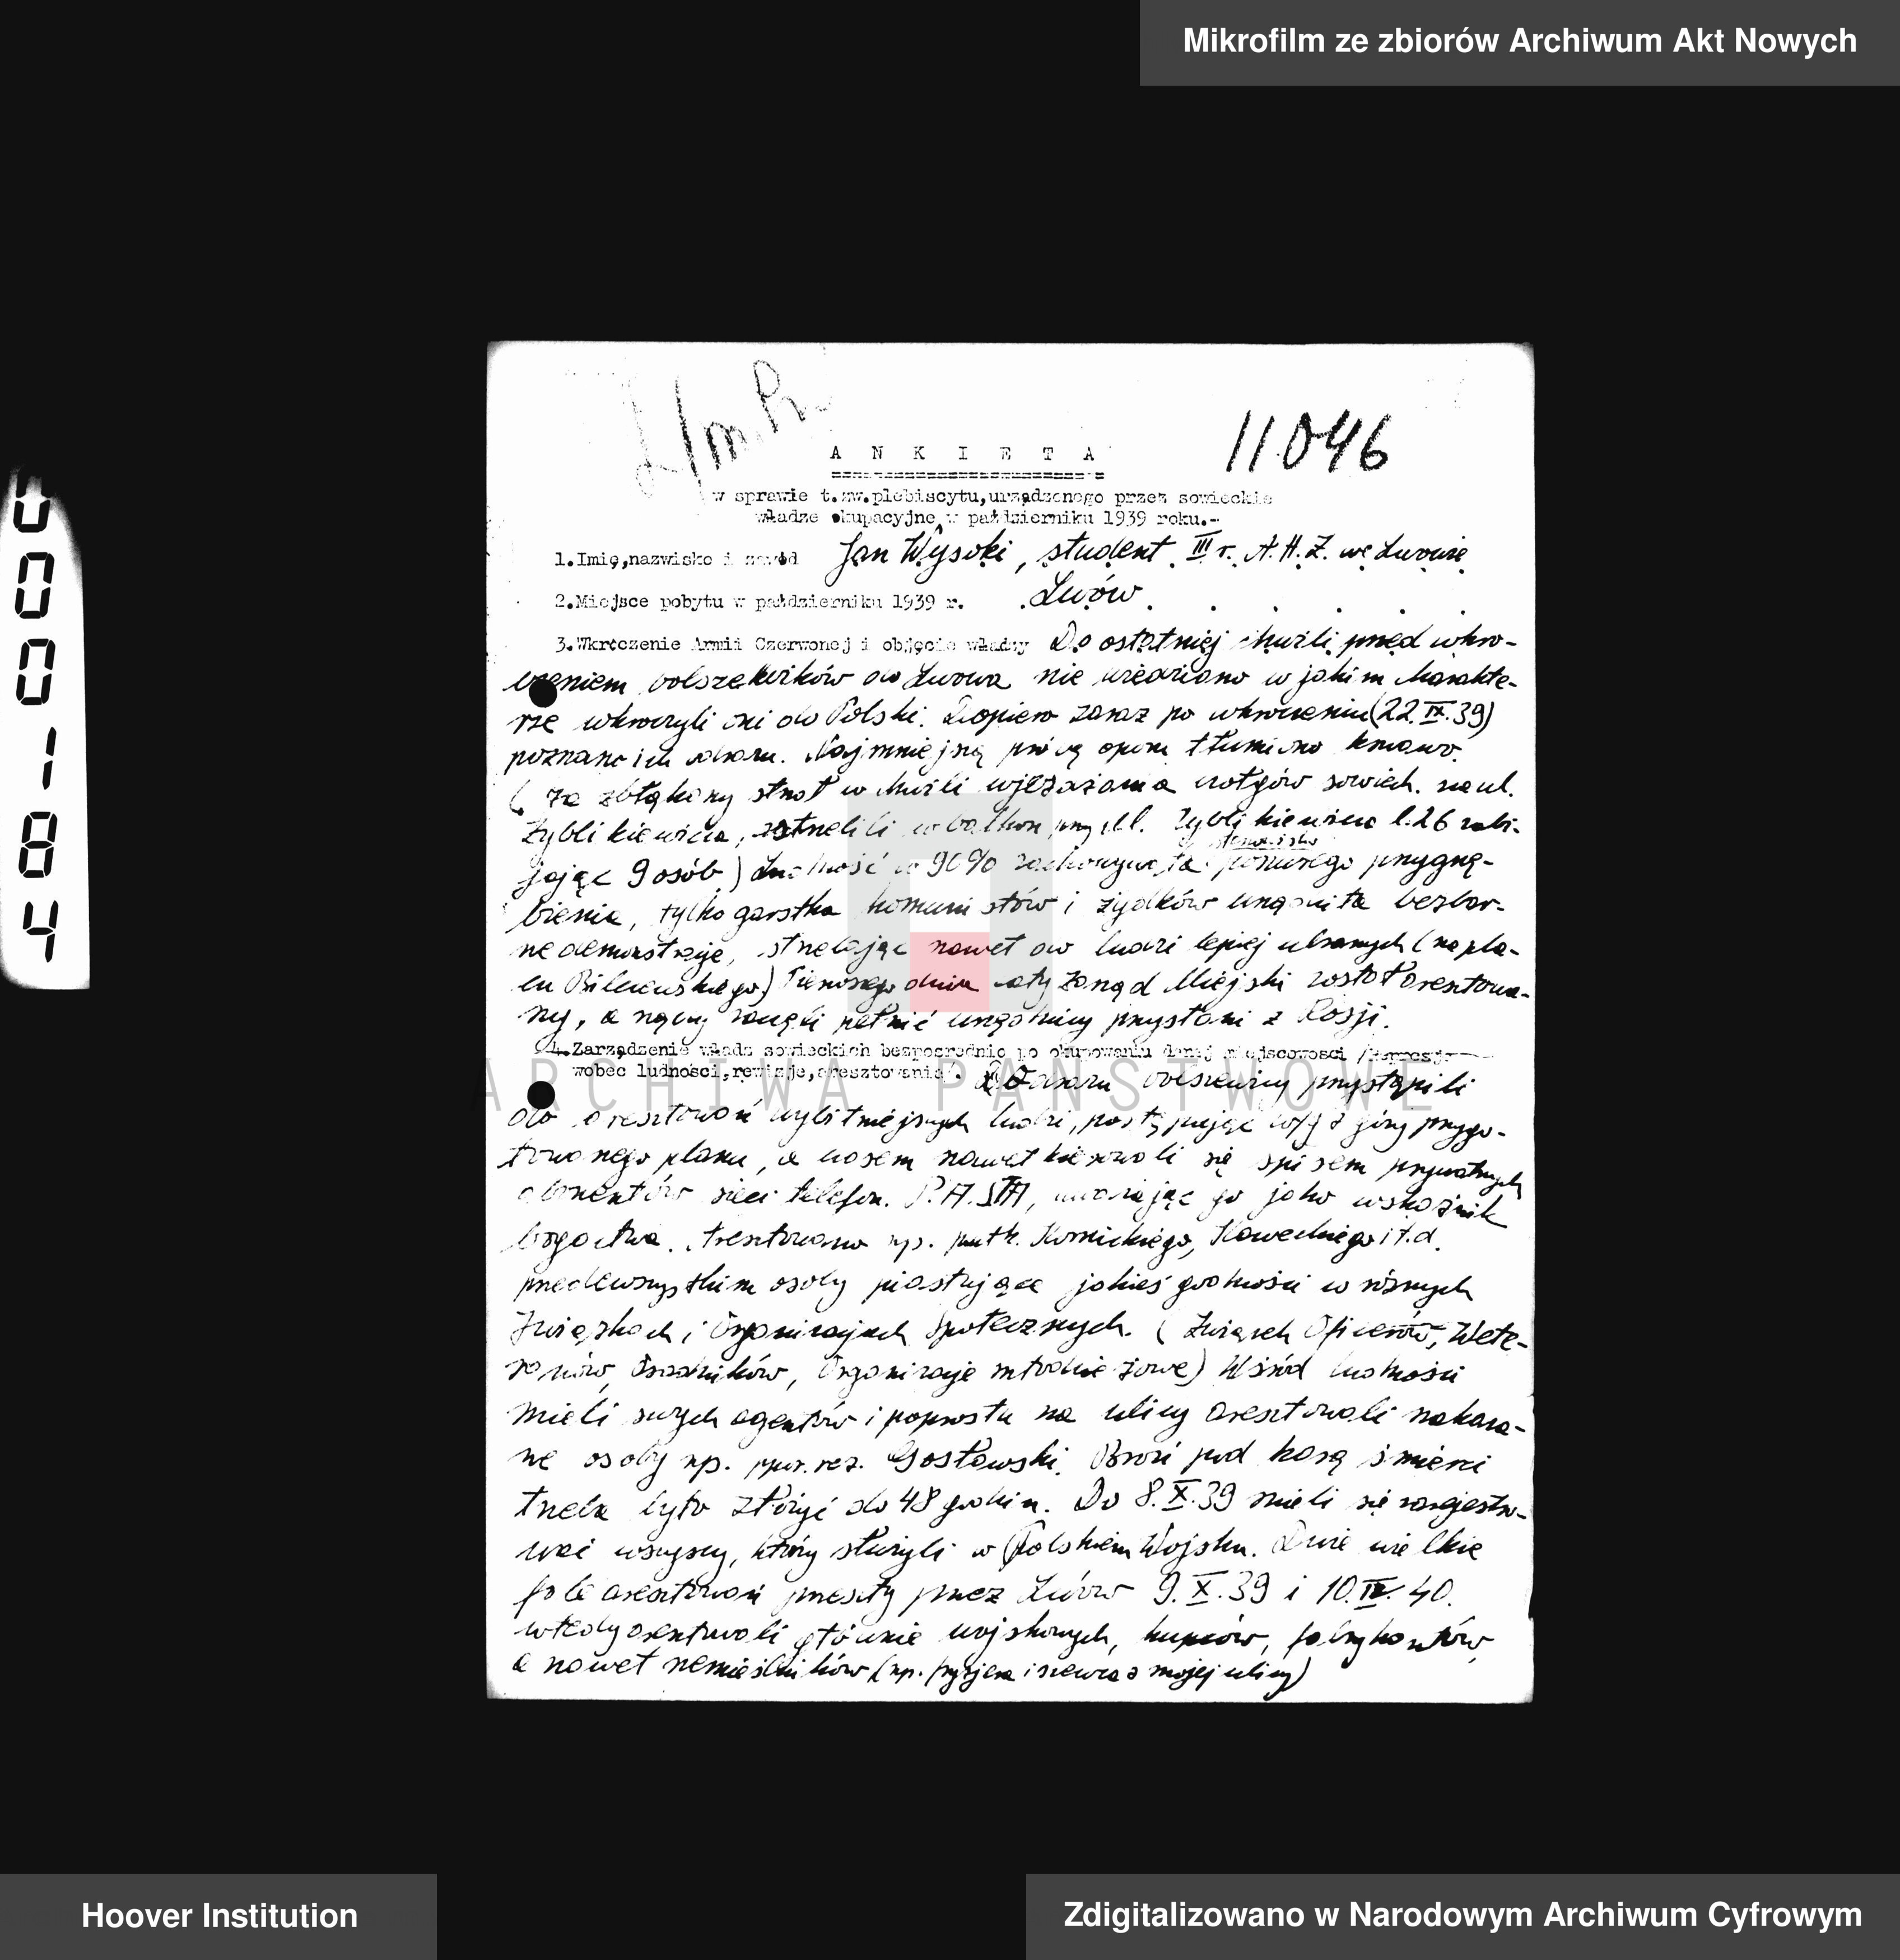 Mikrofilm ze zbiorów Archiwum Akt Nowych
11046
A N K I E T A
w sprawie t.zw.plebiscytu,urządzonego przez sowieckie
władze okupacyjne w październiku 1939 roku.-
1.Imię,nazwisko i zawód Jan Wysoki, student III r. A.H.Z. we Lwowie
2.Miejsce pobytu w październiku 1939 r. Lwów
3.Wkroczenie Armii Czerwonej i objęcie władzy Do ostatniej chwili przed wkro-
czeniem bolszewików do Lwowa nie wiedziano w jakim charakte-
rze wkroczyli oni do Polski. Dopiero zaraz po wkroczeniu (22.IX.39)
poznano ich odrazu. Najmniejszą próbę oporu tłumiono krwawo.
( za zbłąkany strzał w chwili wjeżdżania czołgów sowieck. na ul.
Zyblikiewicza, strzelili w balkon przy ul. Zyblikiewicza l.26 zabi-
jając 9 osób) Ludność w 90% zachowywała stanowisko ponurego przygnę-
bienia, tylko garstka komunistów i żydków urządziła bezbar-
ne demonstracje, strzelając nawet do ludzi lepiej ubranych (na pla-
cu Bilczewskiego) Pierwszego dnia cały Zarząd Miejski został aresztowa-
ny, a rządy zaczęli pełnić urzędnicy przysłani z Rosji.
4.Zarządzenie władz sowieckich bezpośrednio po okupowaniu danej miejscowości /represje
wobec ludności,rewizje,aresztowania/. Od razu bolszewicy przystąpili
do aresztowań wybitniejszych ludzi, postępując wg z góry przygo-
towanego planu, a czasem nawet kierowali się spisem prywatnych
abonentów sieci telefon. P.A.S.T.A, uważając go jako wskaźnik
bogactwa. Aresztowano np. putk. Kaweckiego i t.d.
przedewszystkim osoby piastujące jakieś godności w różnych
Związkach i Organizacjach Społecznych. (Związek Oficerów, Wete-
ranów, Osadników, Organizacje młodzieżowe) Wśród ludności
mieli swych agentów i poprostu na ulicy aresztowali nakaza-
ne osoby np. ppor. rez. Gostowski. Broń pod karą śmierci
trzeba było złożyć do 48 godzin. Do 8.X.39 mieli się zarejestro-
wać wszyscy, którzy służyli w Polskiem Wojsku. Dwie wielkie
fale aresztowań przeszły przez Lwów 9.X.39 i 10.IV.40.
wtedy aresztowali głównie wojskowych, kupców, fabrykantów,
a nawet rzemieślników (np. fryzjera i szewca z mojej ulicy)
ARCHIWA PAŃSTWOWE
000184
Hoover Institution
Zdigitalizowano w Narodowym Archiwum Cyfrowym